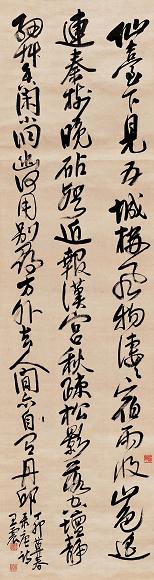 仙臺下見五城樓風物淒淒宿雨收山色遙
連秦樹晚砧聲近報漢宮秋疎松影落空壇靜
細草香閑小洞幽何用別尋方外去人間亦自有丹邱
丁卯
唐詩
王震